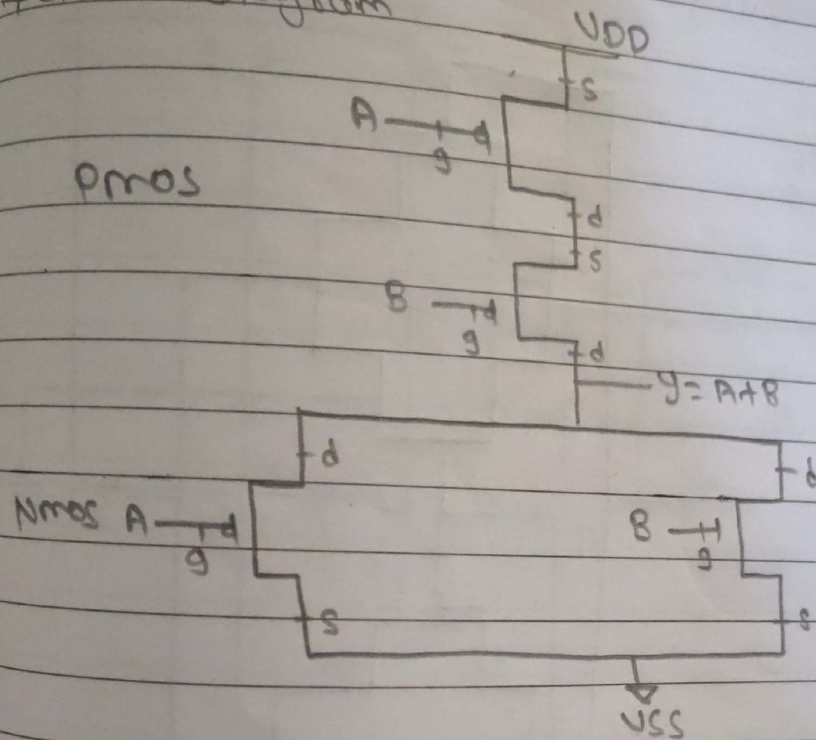 VDD
s
A
g
Pmos
d
s
B
g
d
y = A+B
d
d
Nmos A
g
B
g
s
s
VSS